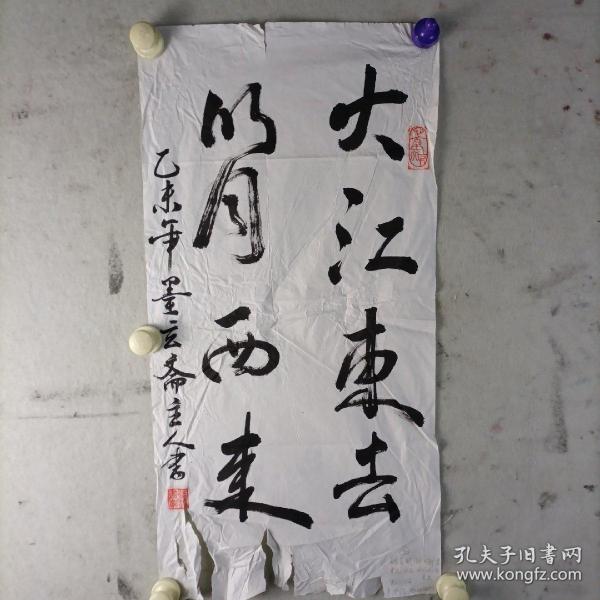 大江東去
明月西来
乙未年墨云斋主人书
孔夫子旧書网
www.kongfz.com